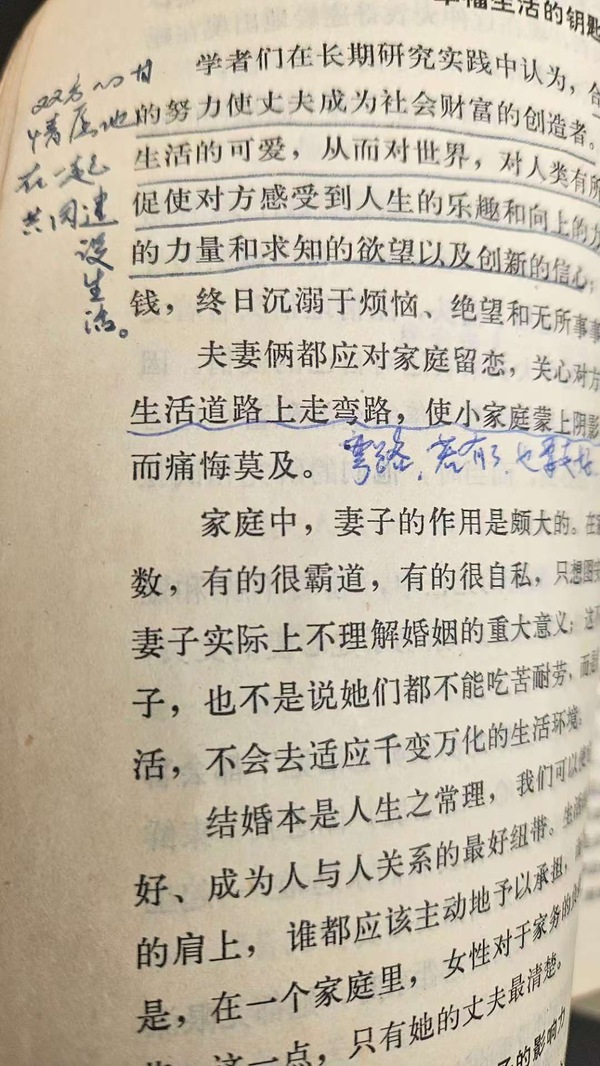 幸福生活的钥匙
学者们在长期研究实践中认为，
的努力使丈夫成为社会财富的创造者。
生活的可爱，从而对世界，对人类有所
促使对方感受到人生的乐趣和向上的力
的力量和求知的欲望以及创新的信心；
钱，终日沉溺于烦恼、绝望和无所事事
夫妻俩都应对家庭留恋，关心对方
生活道路上走弯路，使小家庭蒙上阴影
而痛悔莫及。
家庭中，妻子的作用是颇大的。在
数，有的很霸道，有的很自私，只想图安
妻子实际上不理解婚姻的重大意义；这
子，也不是说她们都不能吃苦耐劳，而
活，不会去适应千变万化的生活环境
结婚本是人生之常理，我们可以
好、成为人与人关系的最好纽带。生活
的肩上，谁都应该主动地予以承担，
是，在一个家庭里，女性对于家务的
这一点，只有她的丈夫最清楚。
子的影响力
双方心甘
情愿地
在一起
共同建
设生
活。
弯路，若有，也要